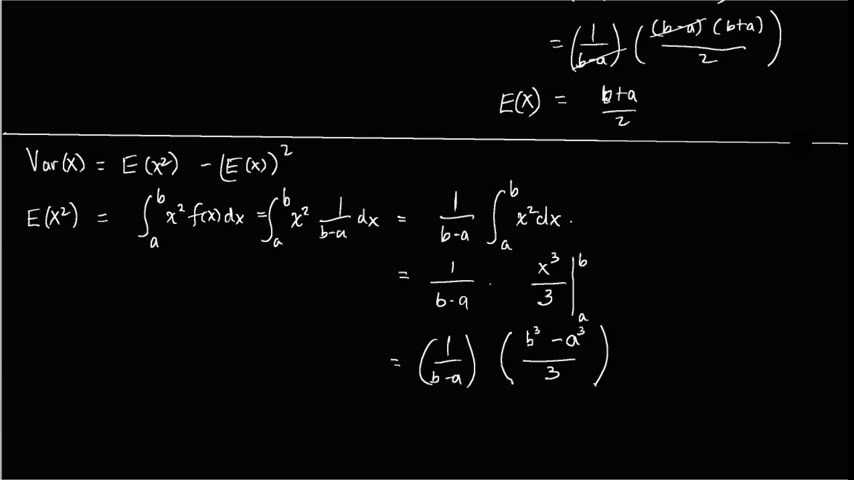 = (1/(b-a)) ((b-a)(b+a)/2)
E(X) = (b+a)/2
Var(X) = E(X²) - (E(X))²
E(X²) = ∫ₐᵇ x² f(x) dx = ∫ₐᵇ x² 1/(b-a) dx = 1/(b-a) ∫ₐᵇ x² dx.
= 1/(b-a) · x³/3 |ₐᵇ
= (1/(b-a)) ((b³ - a³)/3)